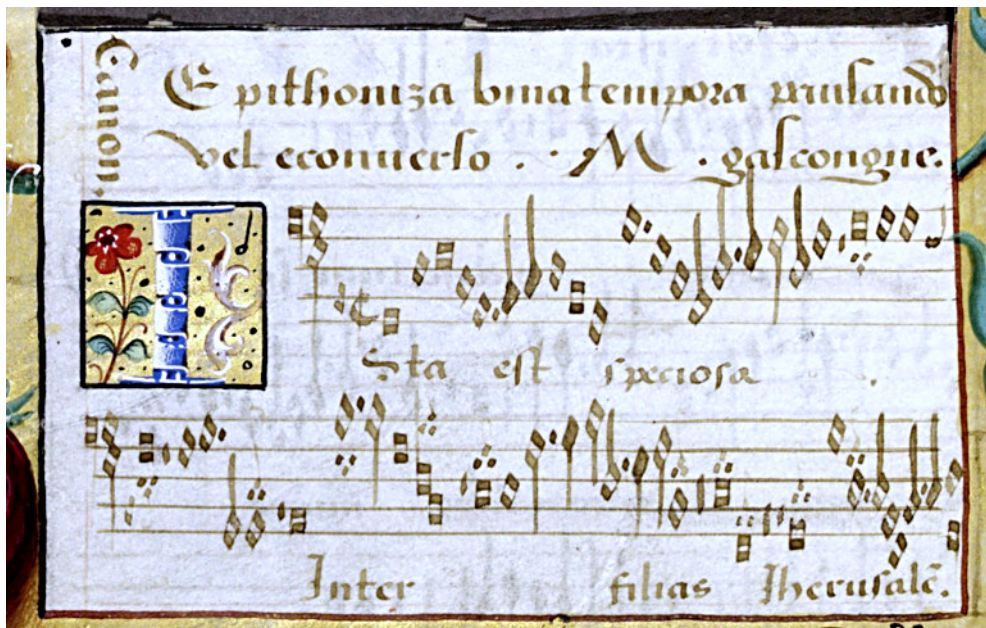 Canon.
Epithoniza bina tempora pausando
vel econuerso . M . gascongne.
Ista est speciosa .
Inter filias Jherusalē.